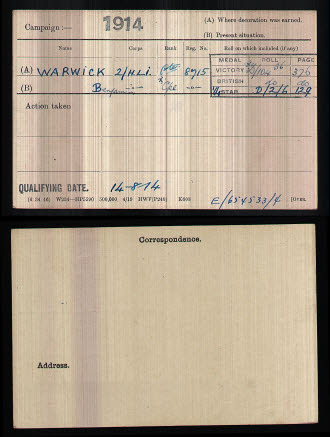 Campaign :— 1914 (A) Where decoration was earned.
(B) Present situation.
Name Corps Rank Reg. No. Roll on which included (if any)
MEDAL ROLL PAGE
(A) WARWICK 2/H.L.I. 8715 VICTORY 376
(B) Benjamin —"— Cpl —"— BRITISH
STAR D/2/6 129
Action taken
QUALIFYING DATE. 14-8-14
(6 34 46) W234—HP5590 500,000 4/19 HWV(P240) K608 E/654533/4 [Over.
Correspondence.
Address.